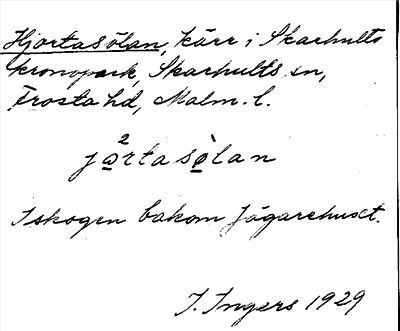 Hjortasölan, kärr i Skarhults
kronopark, Skarhults sn,
Frosta hd, Malm. l.
jo̲²rtasö̲̀lan
I skogen bakom Jägarehuset.
I. Ingers 1929